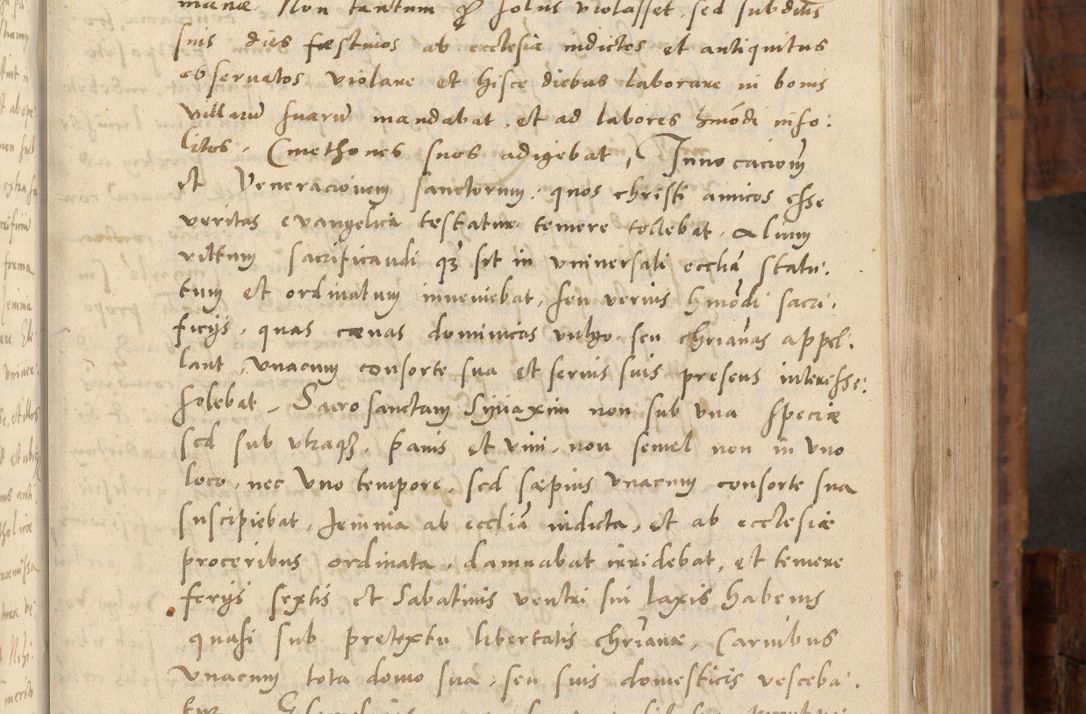 manæ. Non tantum ꝙ solus violasset, sed subditis
suis dies fæstiuos ab ecclesia indictos et antiquitus
observatos violare et hisce diebus laborare in bonis
villarū suarū mandabat, et ad labores hmōdi inso:
litos. Cmethones suos adigebat, Innocacionem
et Veneracionem sanctorum, quos christi amicos esse
veritas evangelica testatur temere tollebat, Alium
ritum sacrificandi qʒ sit in vniuersali ecclīa statu:
tum et ordinatum inueniebat, seu verius hmōdi sacri:
ficijs, quas cænas dominicas vulgo seu chriānas appel:
lant, vnacum consorte sua et seruis suis presens interesse:
solebat, Sacrosanctam Synaxim non sub vna speciæ
sed sub vtraqʒ, panis et vini, non semel non in vno
loco, nec vno tempore, sed sæpius vnacum consorte sua
suscipiebat, Ieiunia ab ecclīa indicta, et ab ecclesiæ
proceribus ordinata, damnabat irridebat, et temere
ferijs sextis et Sabatinis ventri sui laxis habenis
quasi sub pretextu libertatis chriānæ, Carnibus
vnacum tota domo sua, seu suis domesticis vesceba:
tur